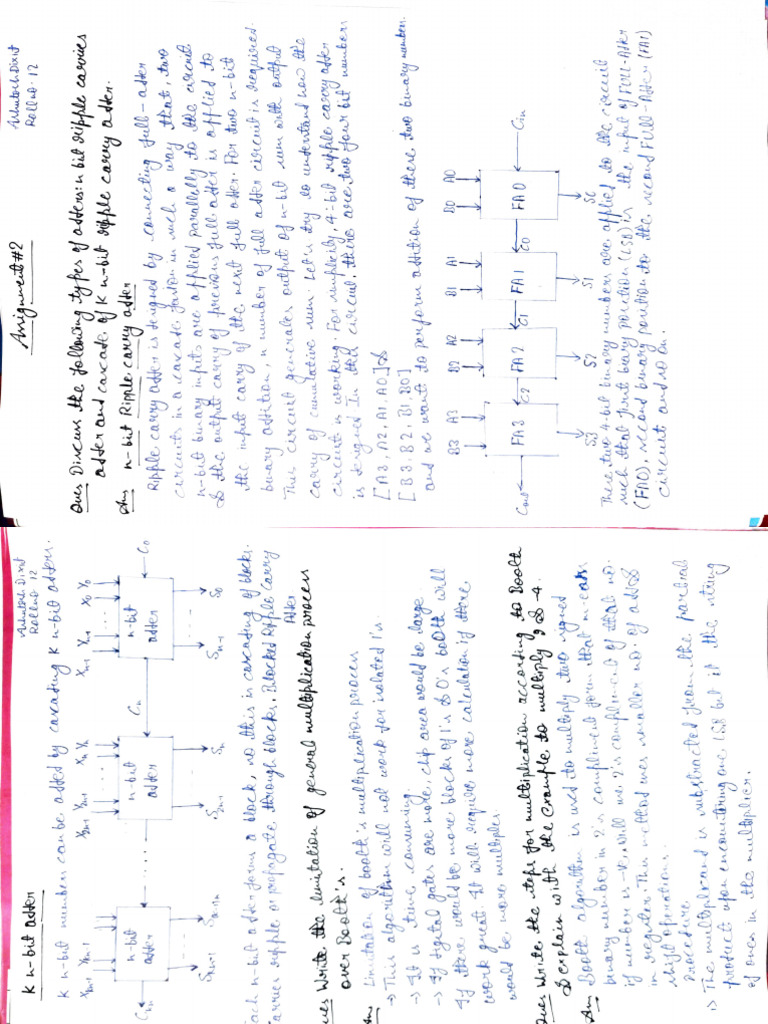 Assignment#2
Ashutosh Dixit
Rollno. 12
Ques Discuss the following types of adders: n bit ripple carries
adder and cascade of K n-bit ripple carry adder.
Ans n-bit Ripple carry adder
Ripple carry adder is designed by connecting full-adder
circuits in a cascade fashion in such a way that, two
n-bit binary inputs are applied parallely to the circuit
& the output carry of previous full adder is applied to
the input carry of the next full adder. For two n-bit
binary addition, n number of full adder circuit is required.
This circuit generates output of n-bit sum with output
carry of cumulative sum. Let's try to understand how the
circuit is working. For simplicity, 4-bit ripple carry adder
is designed. In this circuit, there are two four bit numbers
[A3, A2, A1, A0] &
[B3, B2, B1, B0]
and we want to perform addition of these two binary numbers.
B3 A3 B2 A2 B1 A1 B0 A0
Cout FA3 C2 FA2 C1 FA1 C0 FA0 Cin
S3 S2 S1 S0
These two 4-bit binary numbers are applied to the circuit
such that first binary position (LSB) is the input of Full-Adder
(FA0), second binary position to the second Full-Adder (FA1)
circuit and so on.
Ashutosh Dixit
Rollno 12
K n-bit adder
K n-bit number can be added by cascading K n-bit adders.
Xkn-1 Ykn-1 X2n-1 Y2n-1 Xn Yn Xn-1 Yn-1 X0 Y0
Ckn n-bit adder n-bit adder Cn n-bit adder C0
Skn-1 S2n-1 Sn Sn-1 S0
Each n-bit adder forms a block, so this is cascading of blocks.
Carries ripple or propagate through blocks, Blocked Ripple Carry
Adder
Ques Write the limitation of general multiplication process
over Booth's.
Ans Limitation of booth's multiplication process
→ This algorithm will not work for isolated 1's.
→ It is time consuming
→ If digital gates are more, chip area would be large.
If there would be more blocks of 1's & 0's booth will
work great. It will require more calculation if there
would be more multiples
Ques Write the steps for multiplication according to Booth
& explain with the example to multiply, 9 & -4.
Ans Booth algorithm is used to multiply two signed
binary number in 2's compliment form that
if number is -ve will use 2's compliment of that no.
in register. This method uses smaller no. of add &
shift operations.
Procedure
1) The multiplicand is substracted from the partial
product upon encountering one LSB but if the string
of ones in the multiplier.